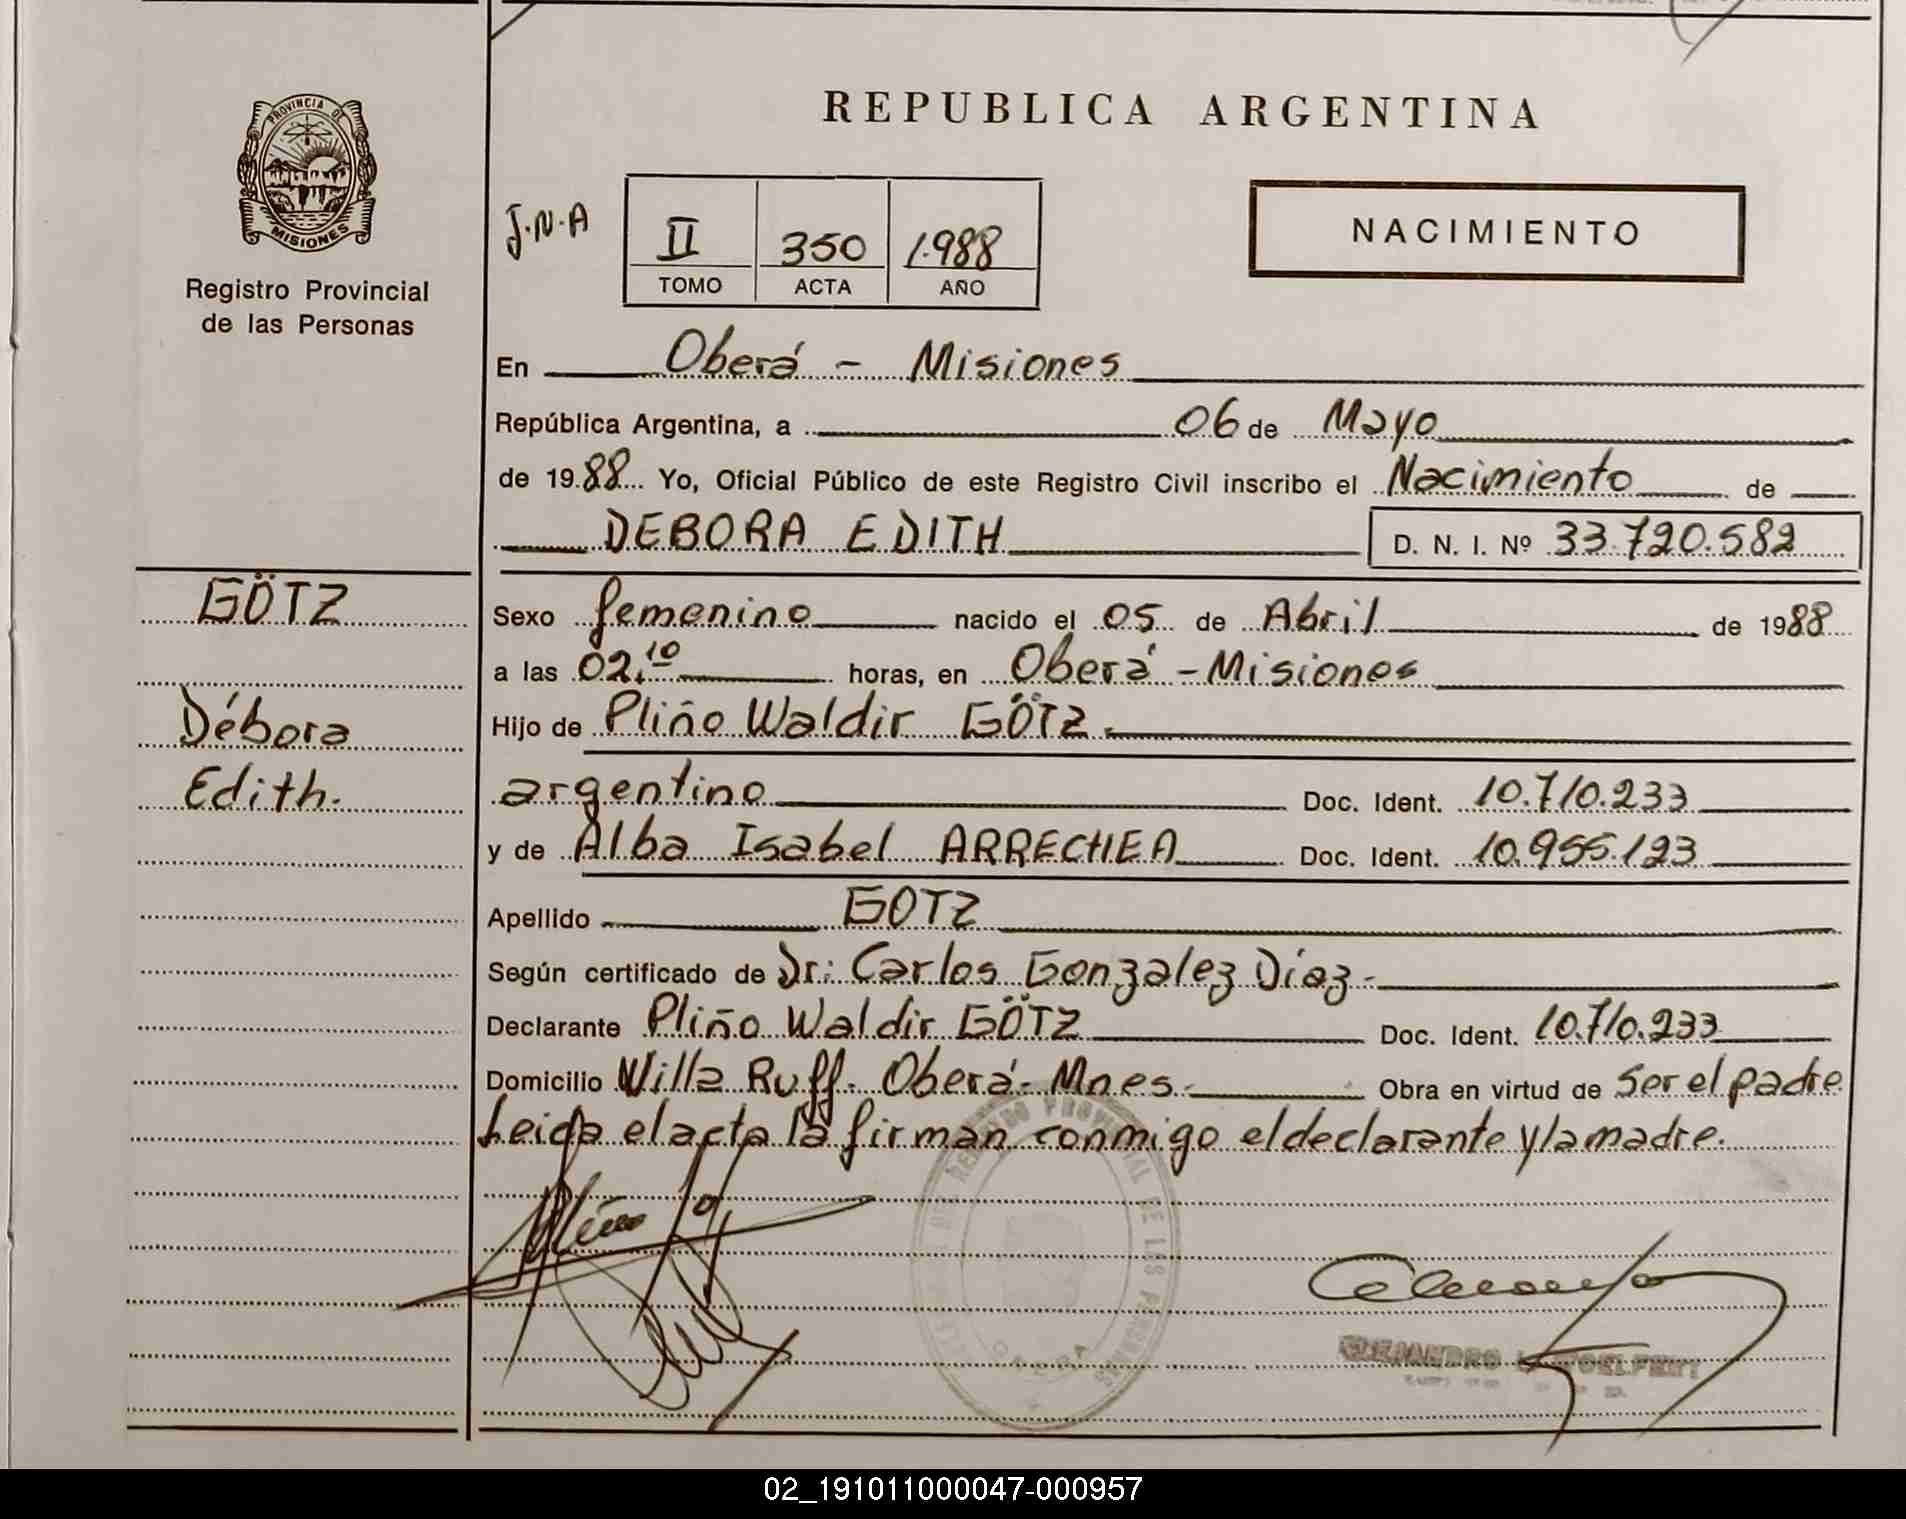 PROVINCIA DE
MISIONES
Registro Provincial
de las Personas
REPUBLICA ARGENTINA
J.N.A
II 350 1.988
TOMO ACTA AÑO
NACIMIENTO
En Oberá - Misiones
República Argentina, a 06 de Mayo
de 1988 Yo, Oficial Público de este Registro Civil inscribo el Nacimiento de
DEBORA EDITH D. N. I. Nº 33.720.582
GÖTZ
Débora
Edith.
Sexo femenino nacido el 05 de Abril de 1988
a las 02.10 horas, en Oberá - Misiones
Hijo de Pliño Waldir GÖTZ.
argentino Doc. Ident. 10.710.233
y de Alba Isabel ARRECHEA Doc. Ident. 10.955.123
Apellido GOTZ
Según certificado de Dr: Carlos Gonzalez Díaz.-
Declarante Pliño Waldir GÖTZ Doc. Ident. 10.710.233
Domicilio Villa Ruff. Oberá- Mnes. Obra en virtud de Ser el padre
Leida el acta la firman conmigo el declarante y la madre.
REGISTRO PROVINCIAL DE LAS PERSONAS
OBERA
02_191011000047-000957